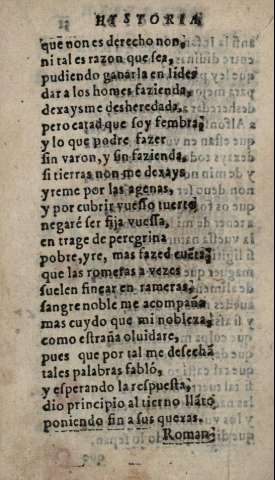 HYSTORIA
que non es derecho non,
ni tal es razon que sea,
pudiendo ganarla en lides
dar a los homes fazienda,
dexaysme desheredada,
pero catad que soy fembra,
y lo que podre fazer
sin varon, y sin fazienda,
si tierras non me dexays
yreme por las agenas,
y por cubrir vuesso tuerto
negaré ser fija vuessa,
en trage de peregrina
pobre, yre, mas fazed cuẽta,
que las romeras a vezes
suelen fincar en rameras,
sangre noble me acompaña
mas cuydo que mi nobleza,
como estraña oluidare,
pues que por tal me desechã
tales palabras fabló,
y esperando la respuesta,
dio principio al tierno llãto
poniendo fin a sus quexas.
Roman-